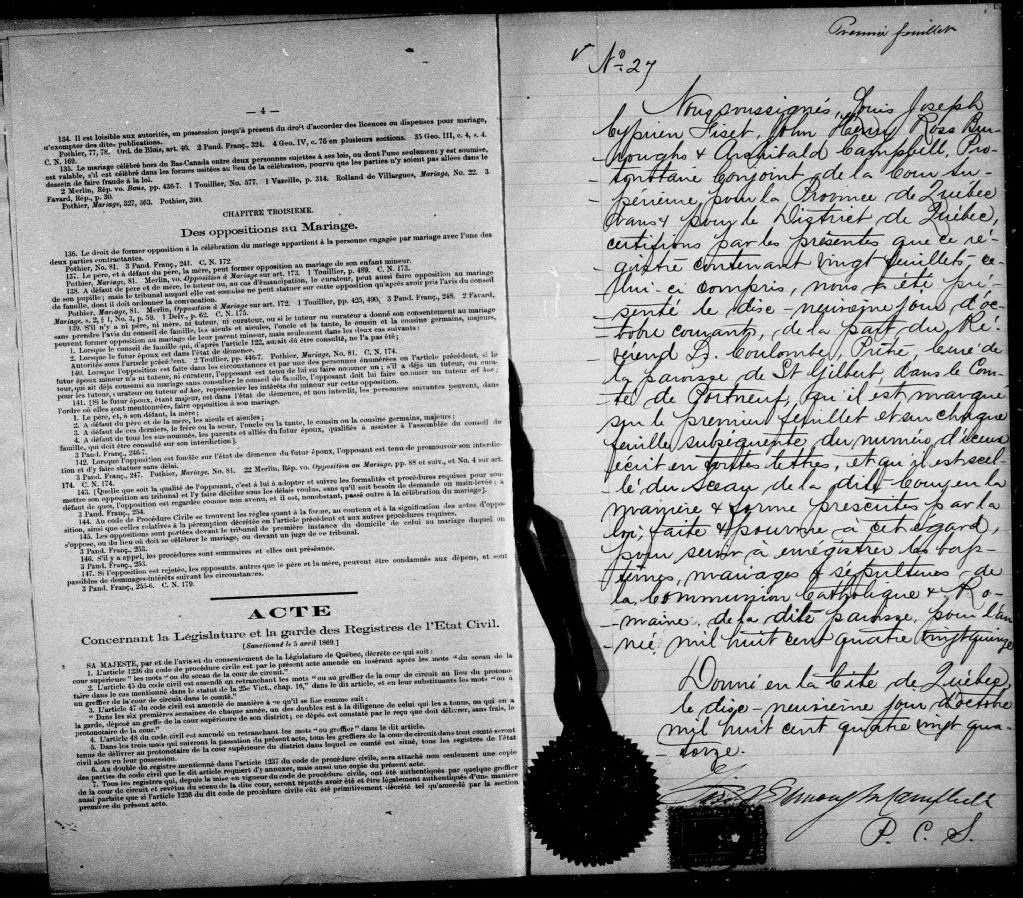 — 4 —
134. Il est loisible aux autorités, en possession jusqu'à présent du droit d'accorder des licences ou dispenses pour mariage,
d'exempter des dites publications.
Pothier, 77, 78. Ord. de Blois, art. 40. 2 Pand. Franç., 324. 4 Geo. IV, c. 76 en plusieurs sections. 35 Geo. III, c. 4, s. 4.
C. N. 169.
135. Le mariage célébré hors du Bas-Canada entre deux personnes sujettes à ses lois, ou dont l'une seulement y est soumise,
est valable, s'il est célébré dans les formes usitées au lieu de la célébration, pourvu que les parties n'y soient pas allées dans le
dessein de faire fraude à la loi.
2 Merlin, Rép. vo. Bans, pp. 436-7. 1 Touillier, No. 577. 1 Vazeille, p. 314. Rolland de Villargues, Mariage, No. 22. 3
Favard, Rép., p. 30.
Pothier, Mariage, 327, 363. Pothier, 390.
CHAPITRE TROISIEME.
Des oppositions au Mariage.
136. Le droit de former opposition à la célébration du mariage appartient à la personne engagée par mariage avec l'une des
deux parties contractantes.
Pothier, No. 81. 3 Pand. Franç., 241. C. N. 172.
137. Le père, et à défaut du père, la mère, peut former opposition au mariage de son enfant mineur.
Pothier, Mariage, 81. Merlin, vo. Opposition à Mariage sur art. 173. 1 Touillier, p. 489. C. N. 173.
138. A défaut de père et de mère, le tuteur ou, au cas d'émancipation, le curateur, peut aussi faire opposition au mariage
de son pupille; mais le tribunal auquel elle est soumise ne peut statuer sur cette opposition qu'après avoir pris l'avis du conseil
de famille, dont il doit ordonner la convocation.
Pothier, Mariage, 81. Merlin, Opposition à Mariage sur art. 172. 1 Touillier, pp. 425, 490, 3 Pand. Franç., 248. 2 Favard,
Mariage, s. 2, § 1, No. 3, p. 59. 1 Delv., p. 62. C. N. 175.
139. S'il n'y a ni père, ni mère, ni tuteur, ni curateur, ou si le tuteur ou curateur a donné son consentement au mariage
sans prendre l'avis du conseil de famille, les aïeuls et aïeules, l'oncle et la tante, le cousin et la cousine germains, majeurs,
peuvent former opposition au mariage de leur parent mineur, mais seulement dans les deux cas suivants:
1. Lorsque le conseil de famille qui, d'après l'article 122, aurait dû être consulté, ne l'a pas été;
2. Lorsque le futur époux est dans l'état de démence.
Autorités sous l'article précédent. 2 Touillier, pp. 446-7. Pothier, Mariage, No. 81. C. N. 174.
140. Lorsque l'opposition est faite dans les circonstances et par une des personnes énumérées en l'article précédent, si le
futur époux mineur n'a ni tuteur, ni curateur, l'opposant est tenu de lui en faire nommer un; s'il a déjà un tuteur ou cura-
teur, qui ait déjà consenti au mariage sans consulter le conseil de famille, l'opposant doit lui faire nommer un tuteur ad hoc;
pour les tuteur, curateur ou tuteur ad hoc, représenter les intérêts du mineur sur cette opposition.
141. [Si le futur époux, étant majeur, est dans l'état de démence, et non interdit, les personnes suivantes peuvent, dans
l'ordre où elles sont mentionnées, faire opposition à son mariage.
1. Le père, et, à son défaut, la mère;
2. A défaut du père et de la mère, les aïeuls et aïeules;
3. A défaut de ces derniers, le frère ou la sœur, l'oncle ou la tante, le cousin ou la cousine germains, majeurs;
4. A défaut de tous les sus-nommés, les parents et alliés du futur époux, qualifiés à assister à l'assemblée du conseil de
famille, qui doit être consulté sur son interdiction].
3 Pand. Franç., 246-7.
142. Lorsque l'opposition est fondée sur l'état de démence du futur époux, l'opposant est tenu de promouvoir son interdic-
tion et d'y faire statuer sans délai.
3 Pand. Franç., 247. Pothier, Mariage, No. 81. 22 Merlin, Rép. vo. Opposition au Mariage, pp. 88 et suiv., et No. 4 sur art.
174. C. N. 174.
143. [Quelle que soit la qualité de l'opposant, c'est à lui à adopter et suivre les formalités et procédures requises pour sou-
mettre son opposition au tribunal et l'y faire décider sous les délais voulus, sans qu'il soit besoin de demande en main-levée; à
défaut de quoi, l'opposition est regardée comme non avenue, et il est, nonobstant, passé outre à la célébration du mariage].
3 Pand. Franç., 254.
144. Au code de Procédure Civile se trouvent les règles quant à la forme, au contenu et à la signification des actes d'oppo-
sition, ainsi que celles relatives à la péremption décrétée en l'article précédent et aux autres procédures requises.
145. Les oppositions sont portées devant le tribunal de première instance du domicile de celui au mariage duquel on
s'oppose, ou du lieu où doit se célébrer le mariage, ou devant un juge de ce tribunal.
3 Pand. Franç., 253.
146. S'il y a appel, les procédures sont sommaires et elles ont préséance.
3 Pand. Franç., 253.
147. Si l'opposition est rejetée, les opposants, autres que le père et la mère, peuvent être condamnés aux dépens, et sont
passibles de dommages-intérêts suivant les circonstances.
3 Pand. Franç., 255-6. C. N. 179.
ACTE
Concernant la Législature et la garde des Registres de l'Etat Civil.
[Sanctionné le 5 avril 1869.]
SA MAJESTE, par et de l'avis et du consentement de la Législature de Québec, décrète ce qui suit:
1. L'article 1236 du code de procédure civile est par le présent acte amendé en insérant après les mots "du sceau de la
cour supérieure" les mots "ou du sceau de la cour de circuit."
2. L'article 45 du code civil est amendé en retranchant les mots "ou au greffier de la cour de circuit au lieu du protono-
faire dans le cas mentionné dans le statut de la 25e Vict., chap. 16," dans le dit article, et en leur substituant les mots "ou à
un greffier de la cour de circuit dans le comté."
3. L'article 47 du code civil est amendé de manière à ce qu'il se lise comme suit:
"Dans les six premières semaines de chaque année, un des doubles est à la diligence de celui qui les a tenus, ou qui en a
la garde, déposé au greffe de la cour supérieure de son district; ce dépôt est constaté par le reçu que doit délivrer, sans frais, le
protonotaire de la cour."
4. L'article 48 du code civil est amendé en retranchant les mots "ou greffier" dans le dit article.
5. Dans les trois mois qui suivront la passation du présent acte, tous les greffiers de la cour de circuit dans tout comté seront
tenus de délivrer au protonotaire de la cour supérieure du district dans lequel ce comté est situé, tous les registres de l'état
civil alors en leur possession.
6. Au double du registre mentionné dans l'article 1237 du code de procédure civile, sera attaché non seulement une copie
des parties du code civil que le dit article requiert d'y annexer, mais aussi une copie du présent acte.
7. Tous les registres qui, depuis la mise en vigueur du code de procédure civile, ont été authentiqués par quelque greffier
de la cour de circuit et revêtus du sceau de la dite cour, seront réputés avoir été et être légalement authentiqués d'une manière
aussi parfaite que si l'article 1236 du dit code de procédure civile eût été primitivement décrété tel qu'amendé par la section
première du présent acte.
Premier feuillet
v No. 27
Nous soussignés, Louis Joseph
Cyprien Fiset, John Henry Ross Bur-
-roughs & Archibald Campbell, Pro-
-tonotaire Conjoint de la Cour Su-
-périeure pour la Province de Québec
dans & pour le District de Québec,
certifions par les présentes que ce ré-
-gistre contenant vingt feuillets, ce-
-lui-ci compris, nous a été pré-
-senté le dix-neuvième jour d'oc-
-tobre courant, de la part du Ré-
-vérend L. Coulombe, Prêtre, Curé de
la paroisse de St Gilbert, dans le Com-
-té de Portneuf, qu'il est marqué
sur le premier feuillet et sur chaque
feuille subséquente du numéro d'iceux
écrit en toutes lettres, et qu'il est scel-
-lé du Sceau de la dite Cour en la
manière & forme prescrites par la
loi, faite & pourvue à cet égard,
pour servir à enregistrer les bap-
-têmes, mariages & sépultures de
la Communion Catholique & Ro-
-maine, de la dite paroisse, pour l'an-
-née mil huit cent quatre vingt quinze
Donné en la Cité de Québec,
le dix-neuvième jour d'octobre
mil huit cent quatre vingt qua-
-torze.
Fiset Burroughs Campbell
P. C. S.